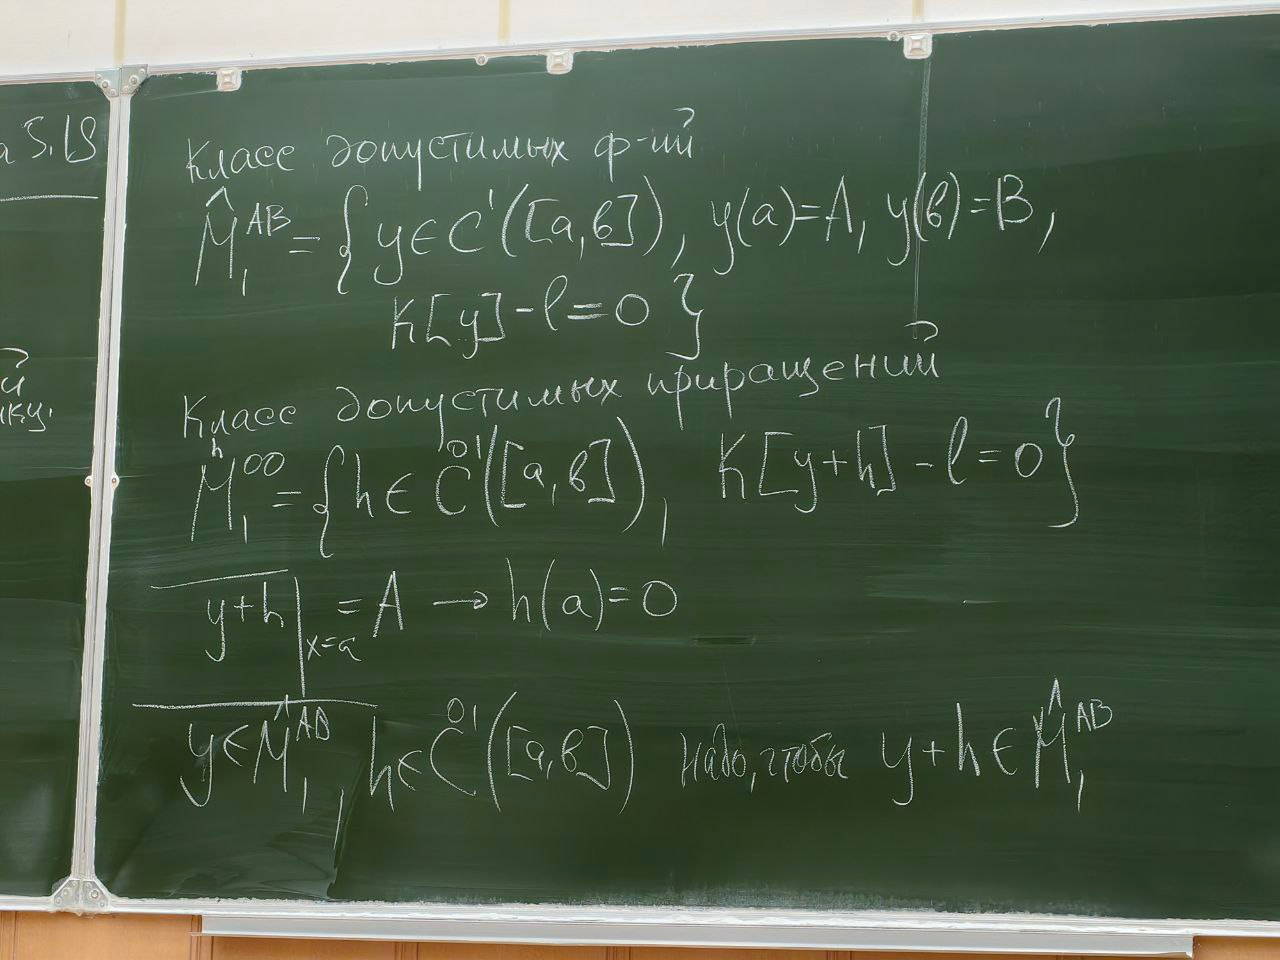 а 5.18
й
Класс допустимых ф-ий
M̂₁ᴬᴮ = { y ∈ C¹([a,b]), y(a)=A, y(b)=B,
K[y] - l = 0 }
Класс допустимых приращений
M̂₁⁰⁰ = { h ∈ C⁰¹([a,b]), K[y+h] - l = 0 }
y+h|ₓ₌ₐ = A → h(a)=0
y ∈ M̂₁ᴬᴮ, h ∈ C⁰¹([a,b]) надо, чтобы y+h ∈ M̂₁ᴬᴮ